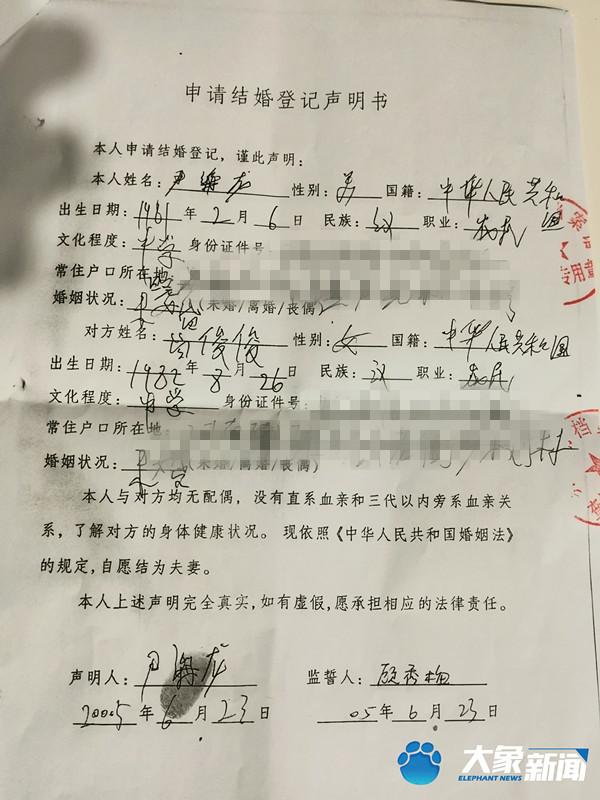 申请结婚登记声明书
本人申请结婚登记，谨此声明：
本人姓名：尹 龙 性别：男 国籍：中华人民共和国
出生日期：1961年2月6日 民族：汉 职业：农民
文化程度：中学 身份证件号
常住户口所在地
婚姻状况：(未婚/离婚/丧偶)
对方姓名：俊俊 性别：女 国籍：中华人民共和国
出生日期：1982年8月26日 民族：汉 职业：农民
文化程度：中学 身份证件号：
常住户口所在地：村
婚姻状况：(未婚/离婚/丧偶)
本人与对方均无配偶，没有直系血亲和三代以内旁系血亲关
系，了解对方的身体健康状况。现依照《中华人民共和国婚姻法》
的规定，自愿结为夫妻。
本人上述声明完全真实，如有虚假，愿承担相应的法律责任。
声明人：尹 龙 监誓人：顾秀梅
2005年6月23日 05年6月23日
专用章
档
大象新闻
ELEPHANT NEWS